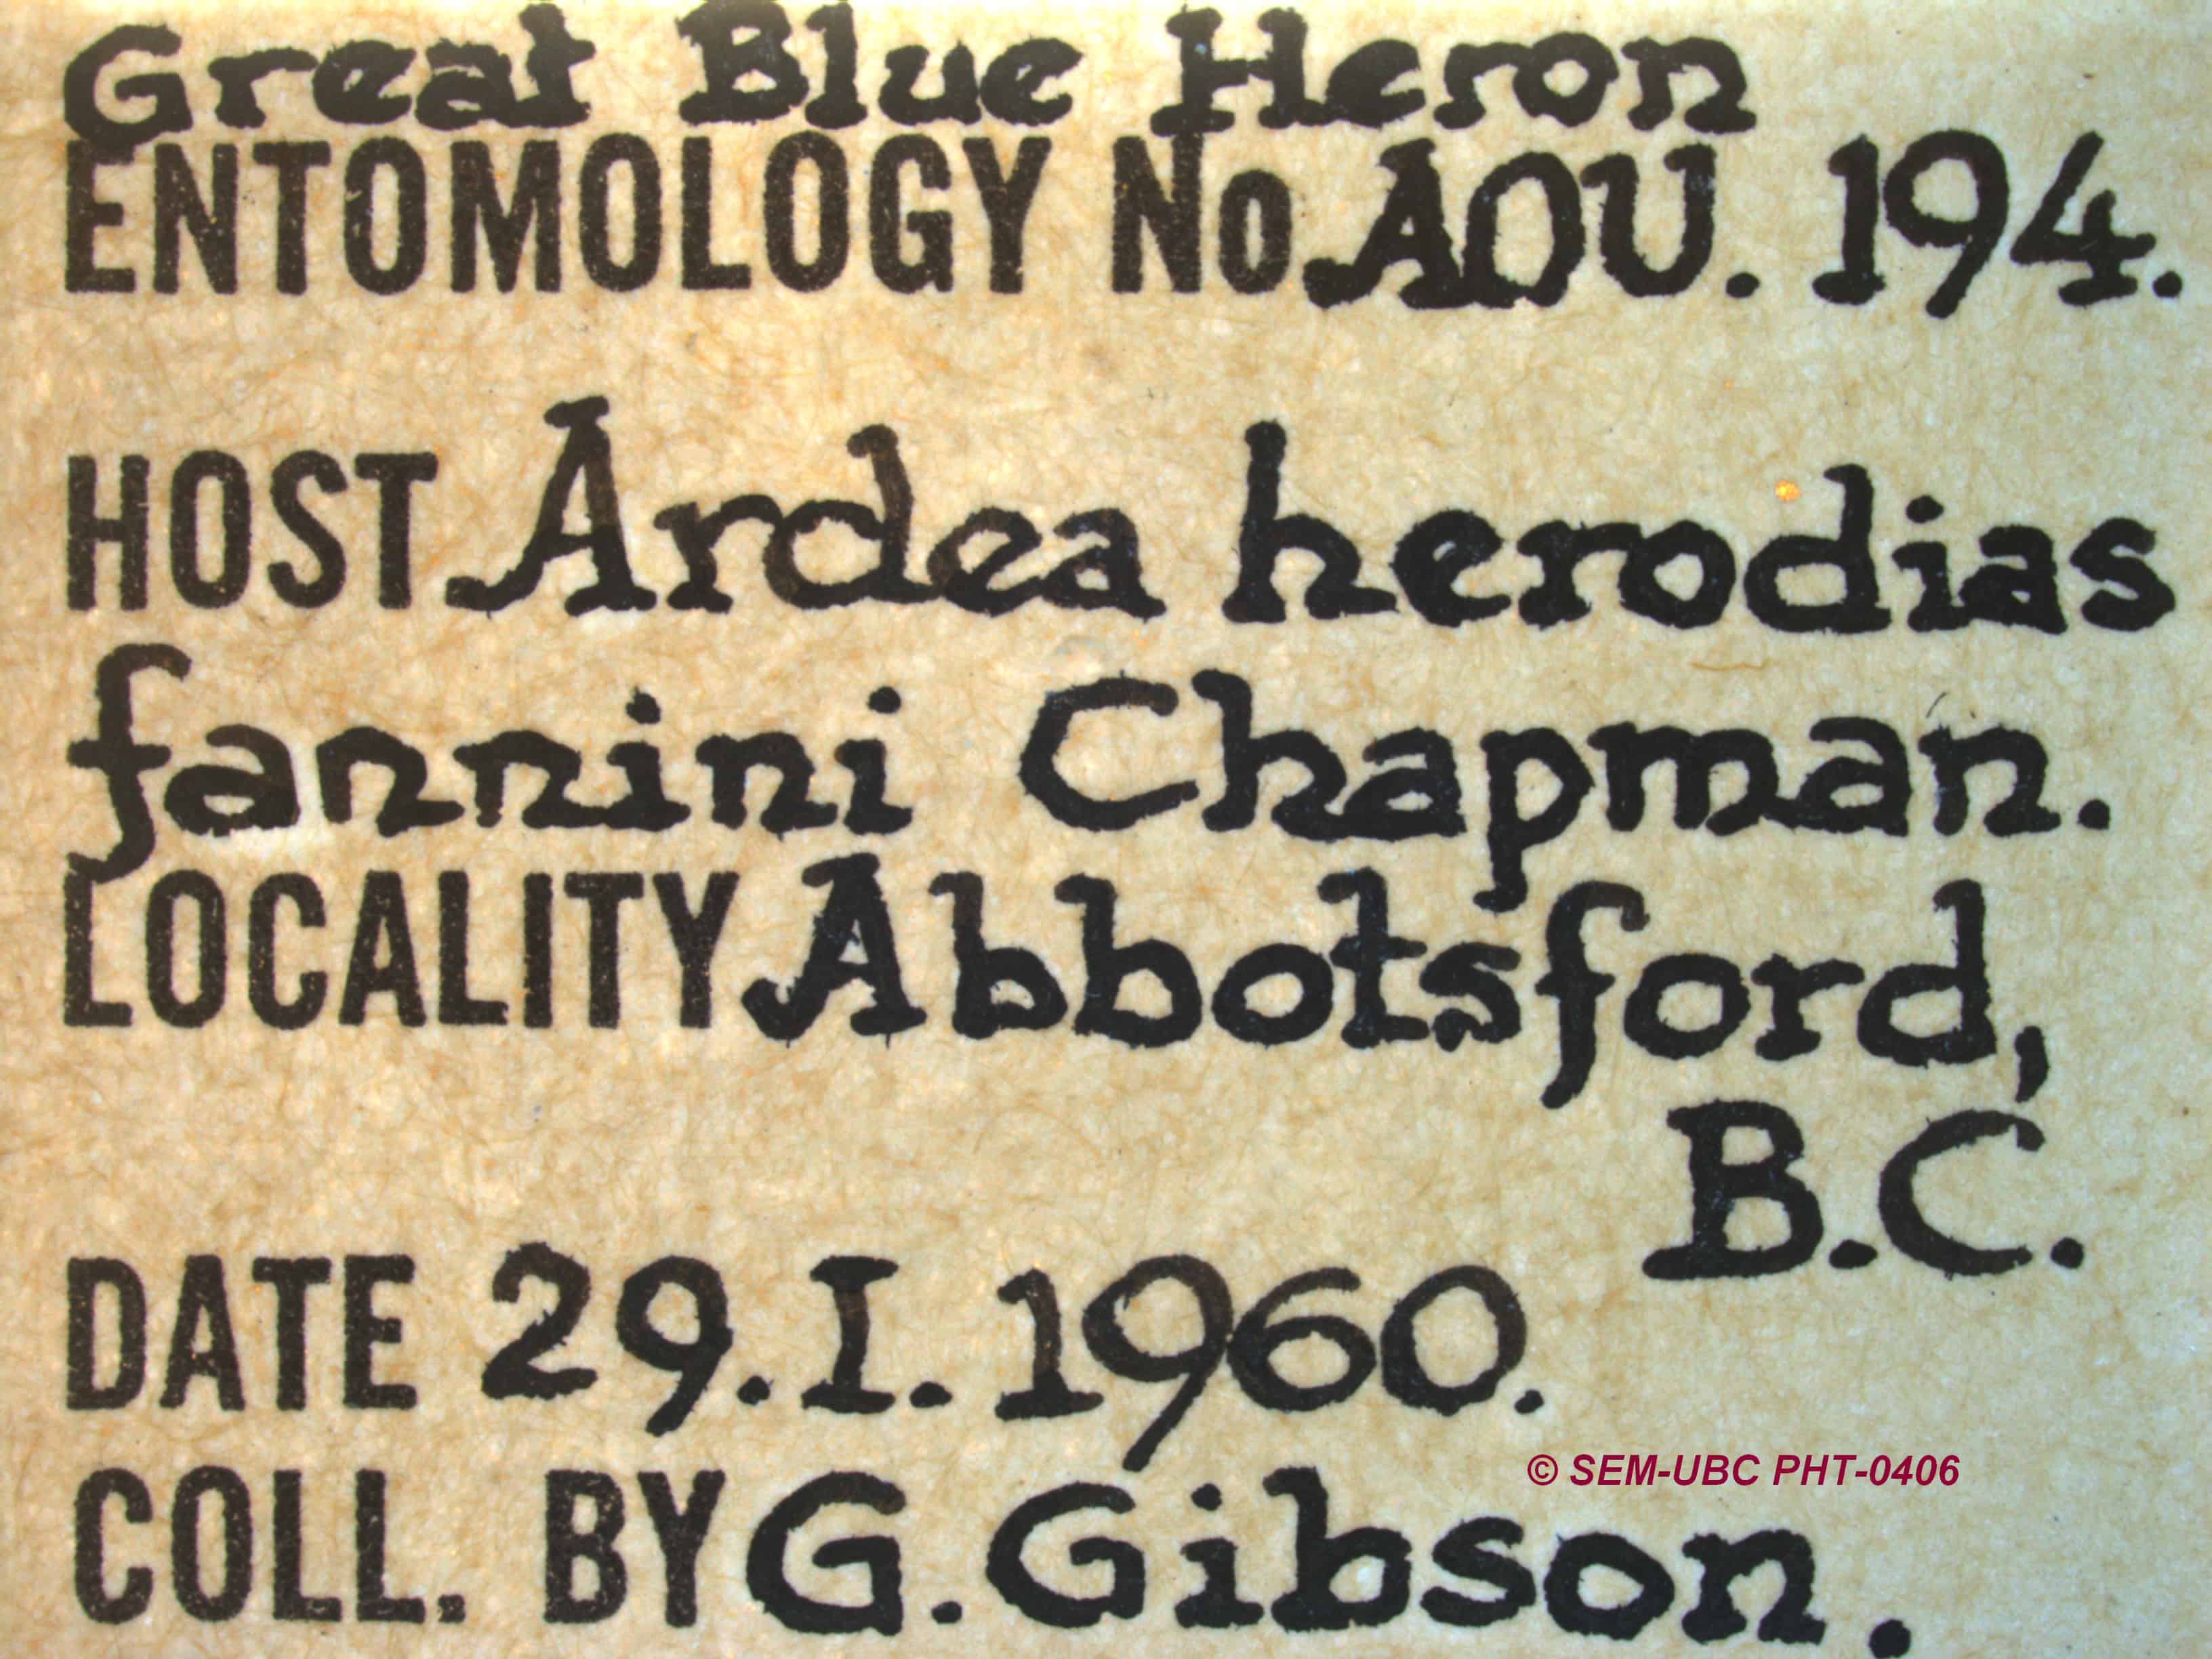 Great Blue Heron
ENTOMOLOGY No. AOU. 194.
HOST Ardea herodias
fannini Chapman.
LOCALITY Abbotsford,
B.C.
DATE 29.I.1960.
© SEM-UBC PHT-0406
COLL. BY G. Gibson.